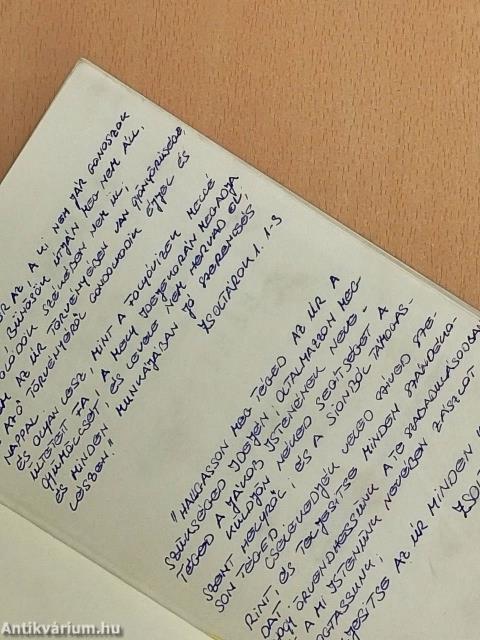 OR AZ, A KI NEM JÁR GONOSZOK
BŰNÖSÖK ÚTJÁN MEG NEM ÁLL,
SZÉKÉBEN NEM ÜL;
AZ ÚR TÖRVÉNYÉBEN VAN GYÖNYÖRŰSÉGE,
AZ Ő TÖRVÉNYÉRŐL GONDOLKODIK ÉJJEL ÉS
NAPPAL.
ÉS OLYAN LESZ, MINT A FOLYÓVIZEK MELLÉ
ÜLTETETT FA, A MELY IDEJEKORÁN MEGADJA
GYÜMÖLCSÉT, ÉS LEVELE NEM HERVAD EL;
ÉS MINDEN MUNKÁJÁBAN JÓ SZERENCSÉS
LÉSZEN."
ZSOLTÁROK 1. 1-3
"HALLGASSON MEG TÉGED AZ ÚR A
SZÜKSÉGED IDEJÉN; OLTALMAZZON MEG
TÉGED A JÁKOB ISTENÉNEK NEVE.
KÜLDJÖN NÉKED SEGÍTSÉGET A
SZENT HELYRŐL; ÉS A SIONBÓL TÁMOGAS-
SON TÉGED.
CSELEKEDJÉK VELED SZÍVED SZE-
RINT, ÉS TELJESÍTSE MINDEN SZÁNDÉKO-
DAT.
HOGY ÖRVENDHESSÜNK A TE SZABADULÁSODBAN
A MI ISTENÜNK NEVÉBEN ZÁSZLÓT
LOGTASSUNK;
AZ ÚR MINDEN